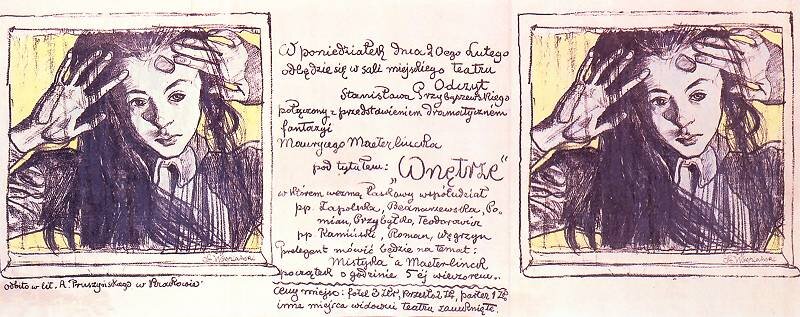 W poniedziałek dnia 20ego Lutego
odbędzie się w sali miejskiego teatru
Odczyt
Stanisława Przybyszewskiego
połączony z przedstawieniem dramatycznem
fantazyi
Maurycego Maeterlincka
pod tytułem: „Wnętrze"
w którem wezmą łaskawy współudział
pp. Zapolska, Bednarzewska, Po-
mian, Przybyłko, Teodorowicz
pp Kamiński, Roman, Węgrzyn
Prelegent mówić będzie na temat:
Mistyka a Maeterlinck
początek o godzinie 5ej wieczorem..
Ceny miejsc: fotel 3 Złr, krzesło 2 Zł, parter 1 Zł
inne miejsca widowni teatru zamknięte.
odbito w lit. A. Pruszyńskiego w Krakowie
St. Wyspiański
St. Wyspiański